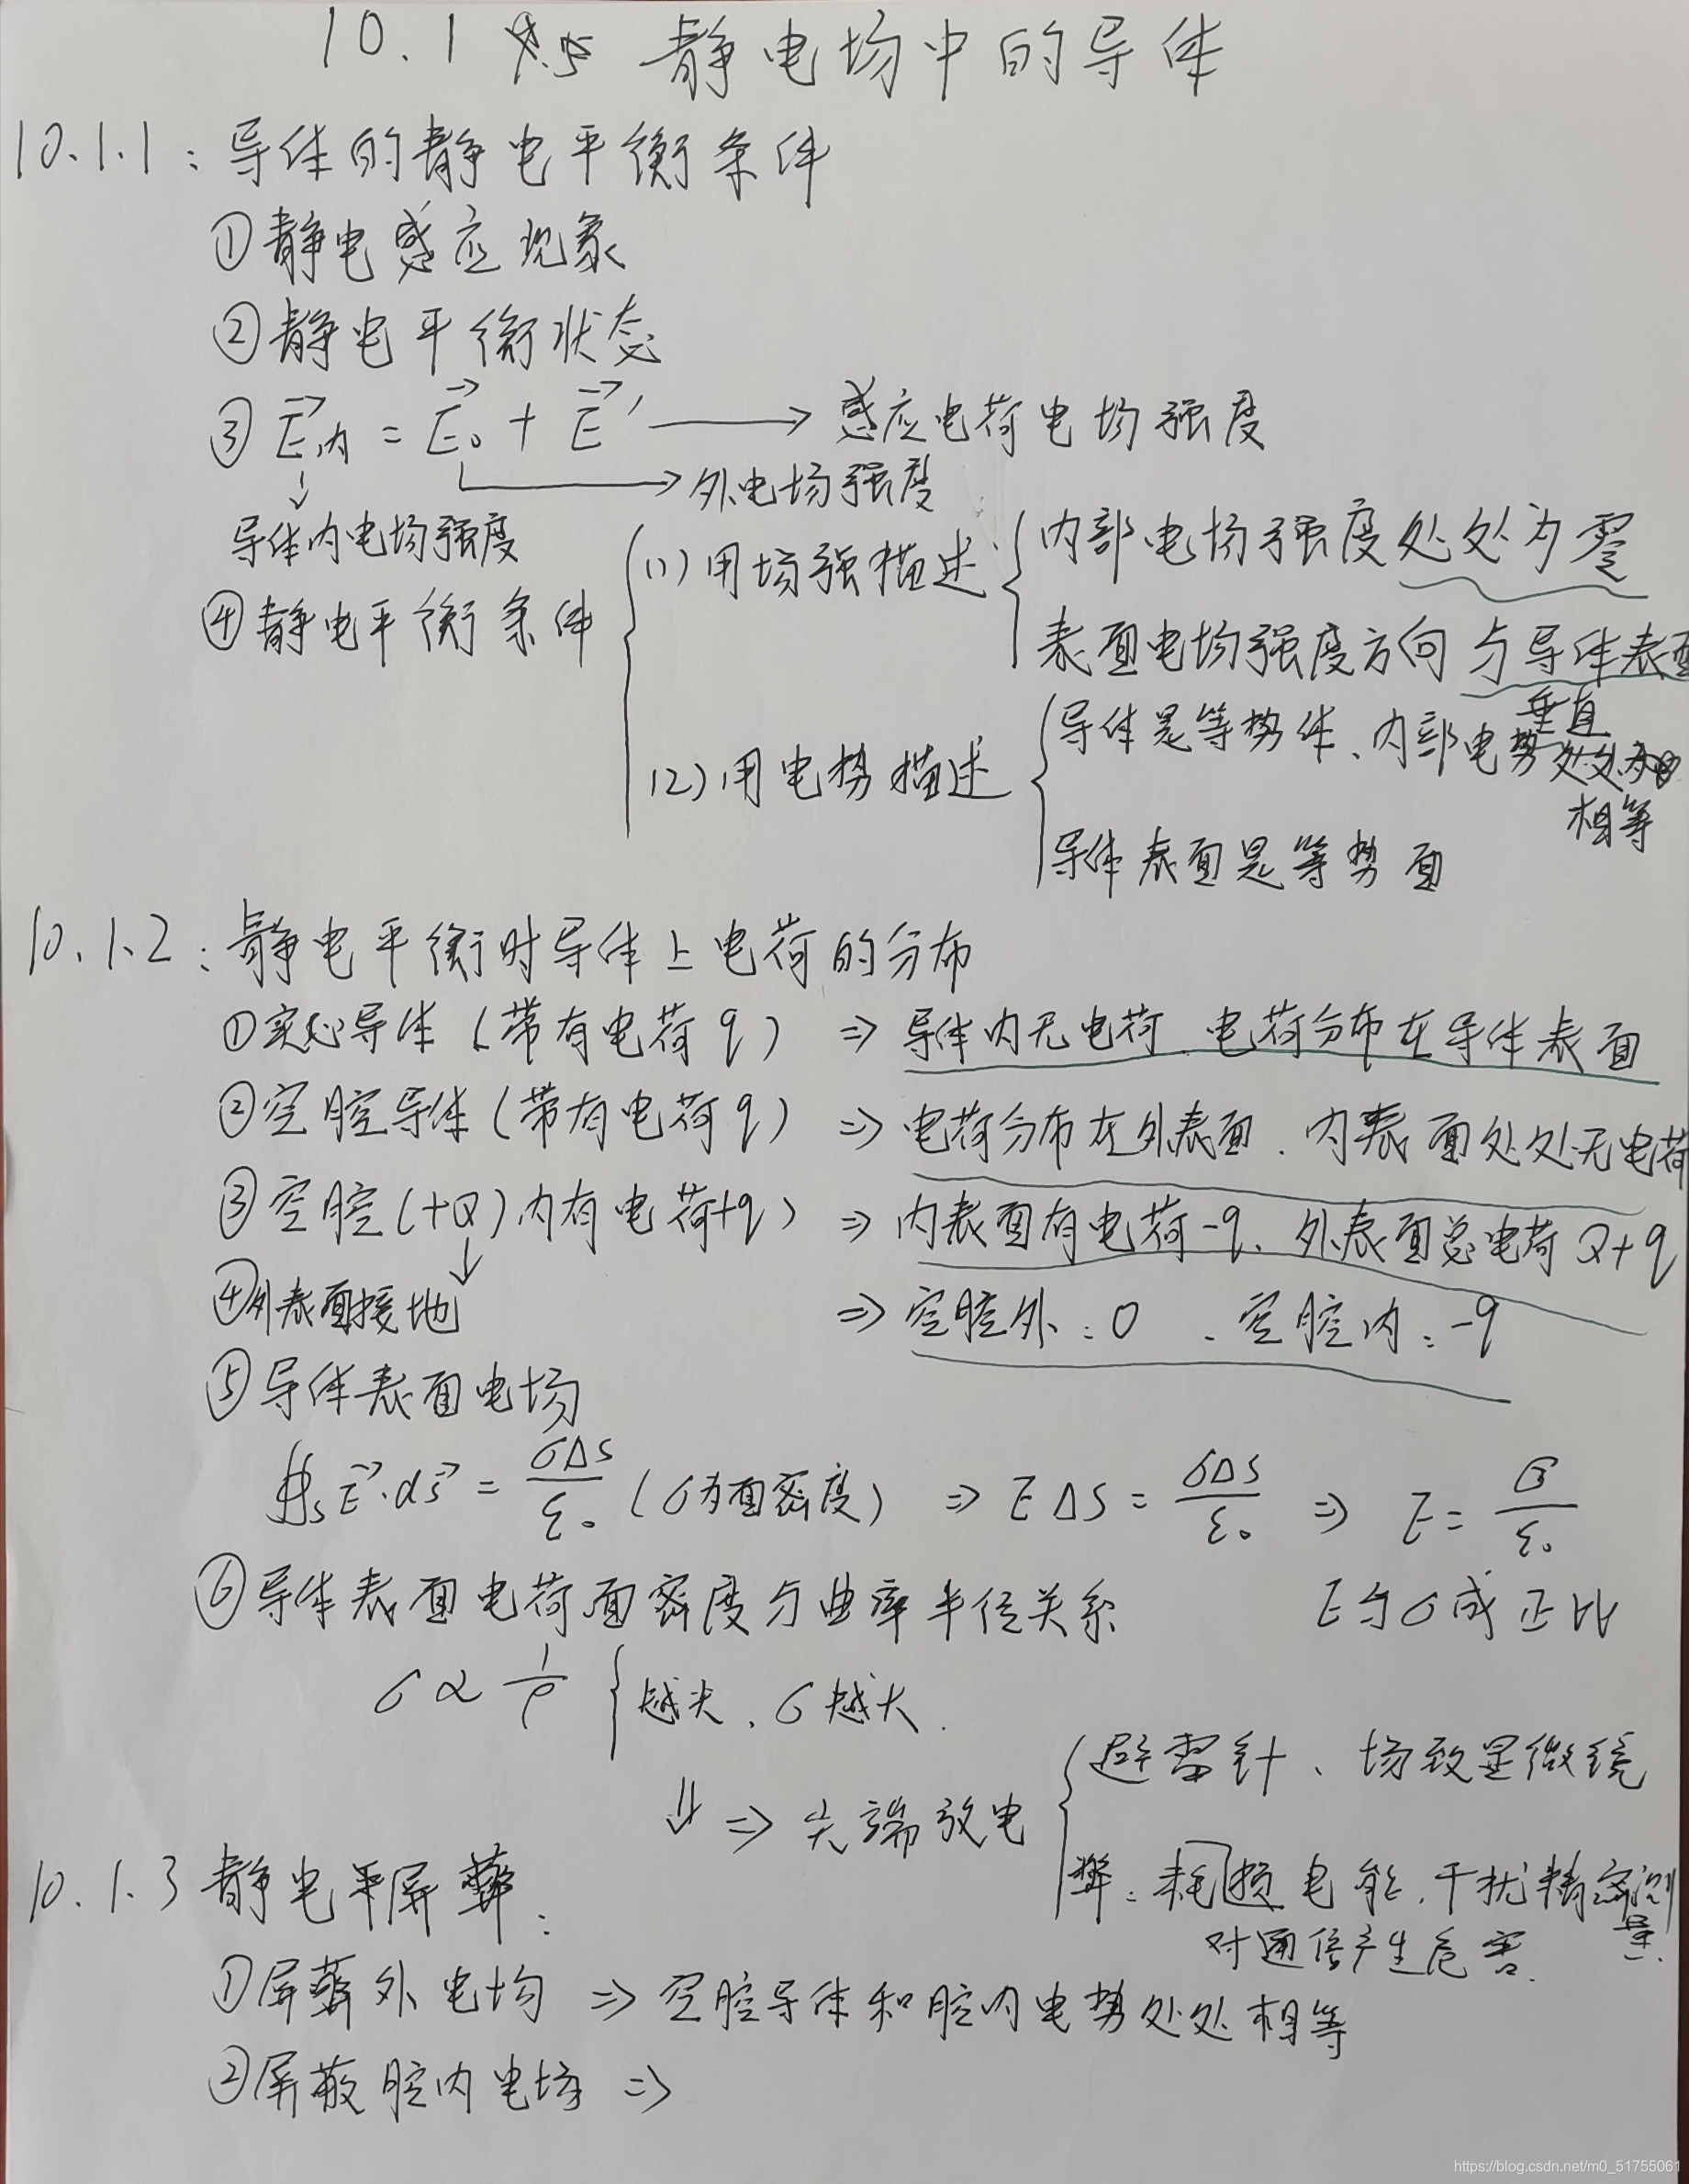 10.1 静电场中的导体
10.1.1：导体的静电平衡条件
①静电感应现象
②静电平衡状态
③ E⃗内 = E⃗₀ + E⃗′ → 感应电荷电场强度
→外电场强度
↓
导体内电场强度
(1)用场强描述 { 内部电场强度处处为零
④静电平衡条件 {
表面电场强度方向与导体表面
垂直
导体是等势体、内部电势处处为
(2)用电势描述 {
相等
导体表面是等势面
10.1.2：静电平衡时导体上电荷的分布
①实心导体（带有电荷q） ⇒ 导体内无电荷、电荷分布在导体表面
②空腔导体（带有电荷q） ⇒ 电荷分布在外表面、内表面处处无电荷
③空腔(+Q)内有电荷+q） ⇒ 内表面有电荷-q、外表面总电荷Q+q
↓
④外表面接地 ⇒ 空腔外：0 、空腔内：-q
⑤导体表面电场
∯s E⃗·dS⃗ = σΔS/ε₀ (σ为面密度) ⇒ EΔS = σΔS/ε₀ ⇒ E = σ/ε₀
⑥导体表面电荷面密度与曲率半径关系 E与σ成正比
σ ∝ 1/ρ { 越尖、σ越大.
避雷针、场致显微镜
⇓ ⇒ 尖端放电 {
弊：耗损电能，干扰精密测
量.
对通信产生危害.
10.1.3 静电屏蔽：
①屏蔽外电场 ⇒ 空腔导体和腔内电势处处相等
②屏蔽腔内电场 ⇒
https://blog.csdn.net/m0_51755061